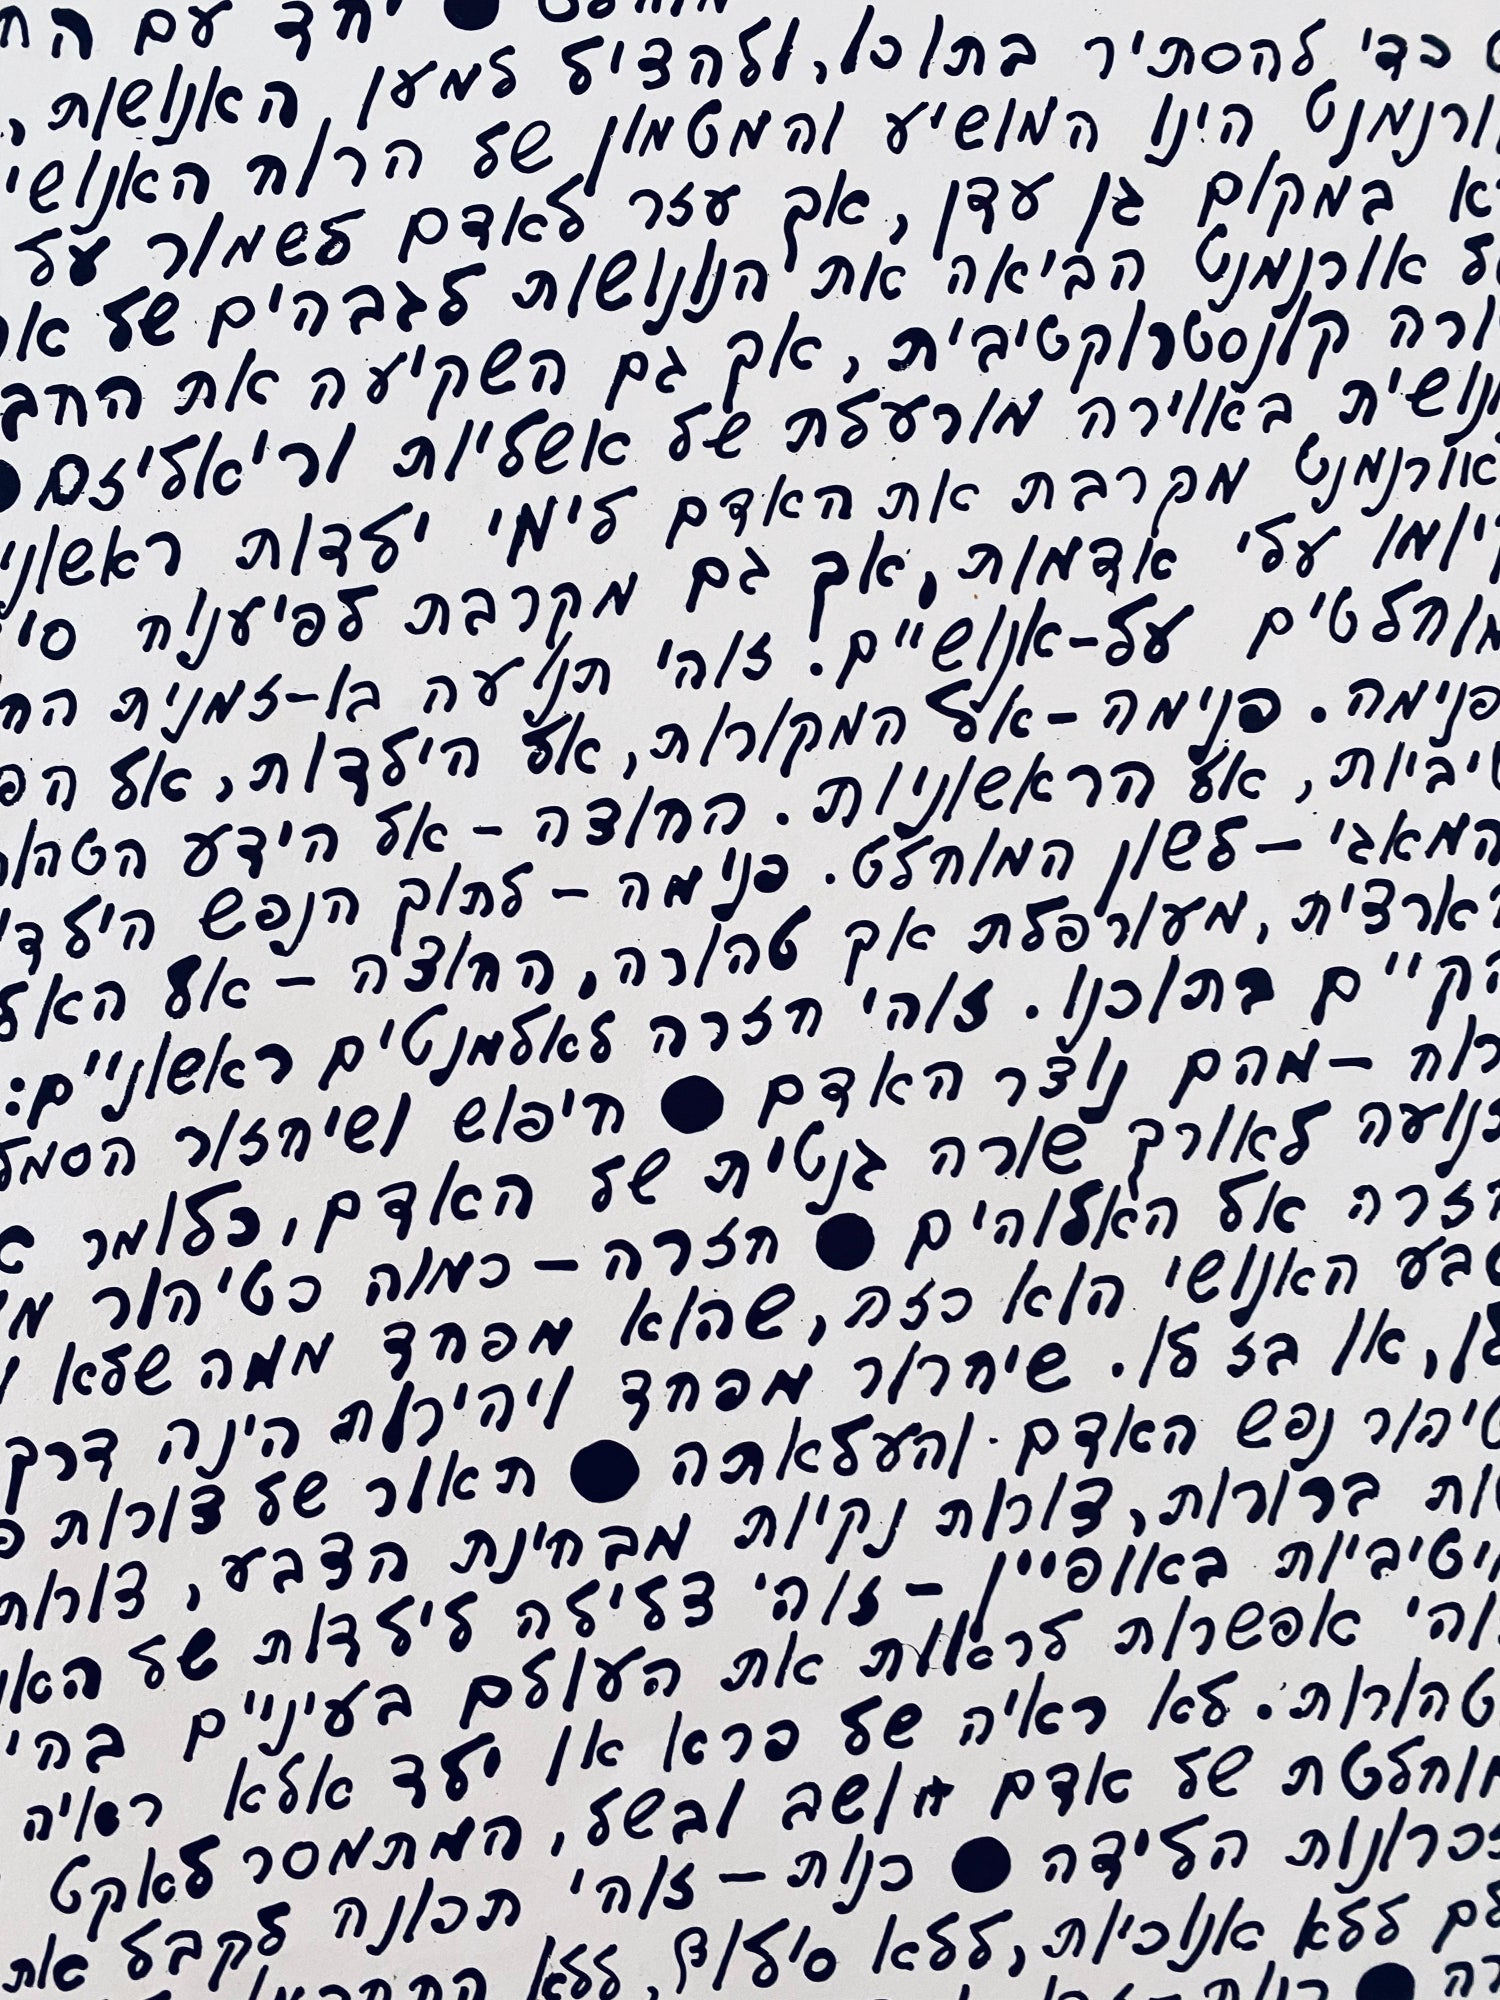 יחד עם הח
כדי להסתיר בתוכו, ולהציל למען האנושות,
ורנמנט הינו המושיע והמטמון של הרוח האנושי
במקום גן עדן, אך עזר לאדם לשמור על
אורנמנט הביאה את הנונושות לגבהים של או
ורה קונסטרוקטיבית, אך גם השקיעה את החב
נושית באוירה מורעלת של אשליות וריאליזם ●
אורנמנט מקרבת את האדם לימי ילדות ראשוני
קיומו עלי אדמות, אך גם מקרבת לפיענוח סי
מוחלטים על-אנושיים. זוהי תנועה בו-זמנית הח
פנימה. פנימה-אל המקורות, אל הילדות, אל הפ
טיביות, אל הראשוניות. החוצה - אל הידע הטהור
המאגי - לשון המוחלט. פנימה - לתוך הנפש הילדי
הארצית, מעורפלת אך טהורה, החוצה - אל האל
הקיים בתוכנו. זוהי חזרה לאלמנטים ראשוניים:
רוח - מהם נוצר האדם ● חיפוש ושיחזור הסמל
תנועה לאורך שורה גנטית של האדם, כלומר
חזרה אל האלוהים ● חזרה - כמוה כטיהור מ
טבע האנושי הוא כזה, שהוא מפחד ממה שלא
לו, או בז לו. שיחרור מפחד ויהירות הינה דרך
טיהור נפש האדם והעלאתה ● תאור של צורות פ
ברורות, צורות נקיות מבחינת הצבע, צורות
יטיביות באופיין - זוהי צלילה לילדות של האנ
זוהי אפשרות לראות את העולם בעיניים בהי
טהורות. לא ראיה של פרא או ילד אלא ראיה
מוחלטת של אדם חושב ובשל, המתמסר לאקט
זכרונות הלידה ● כנות - זוהי תכונה לקבל את
ללא אנוכיות, ללא סילוף, ללא